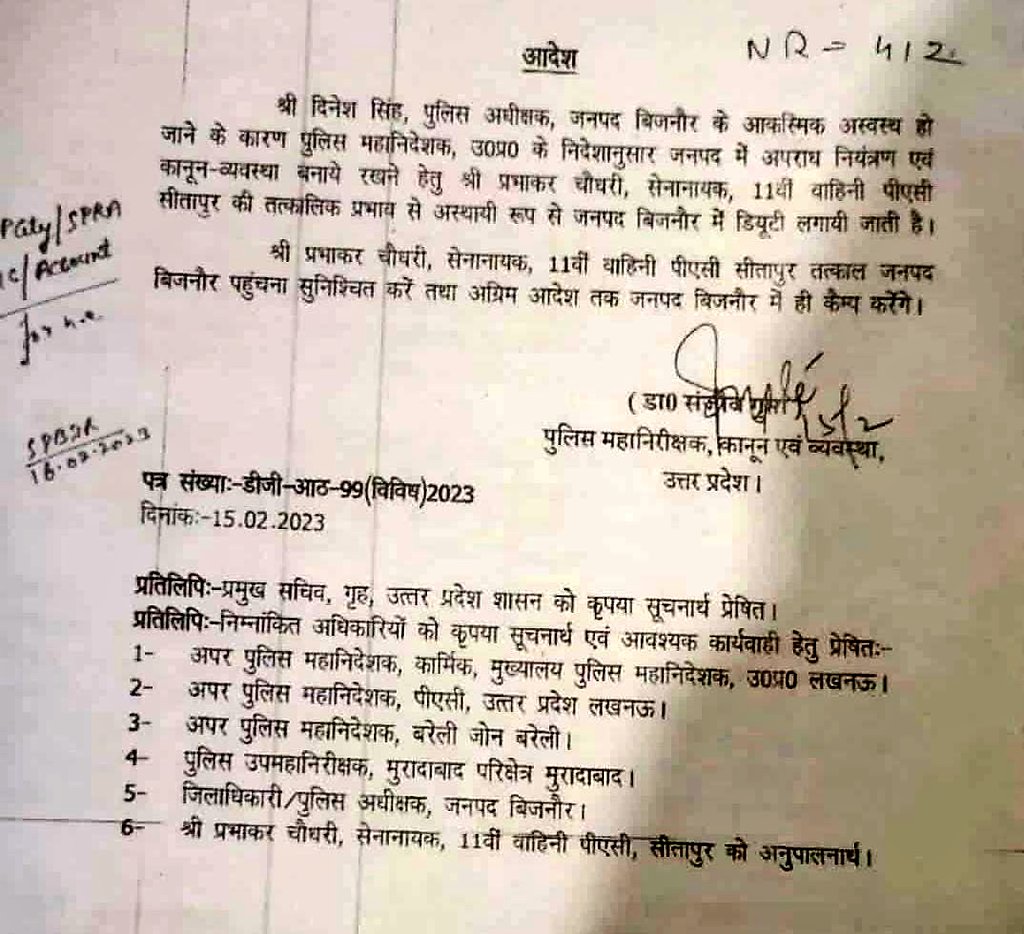 आदेश
NR = 412
श्री दिनेश सिंह, पुलिस अधीक्षक, जनपद बिजनौर के आकस्मिक अस्वस्थ हो
जाने के कारण पुलिस महानिदेशक, उ0प्र0 के निदेशानुसार जनपद में अपराध नियंत्रण एवं
कानून-व्यवस्था बनाये रखने हेतु श्री प्रभाकर चौधरी, सेनानायक, 11वीं वाहिनी पीएसी
सीतापुर की तत्कालिक प्रभाव से अस्थायी रूप से जनपद बिजनौर में डियूटी लगायी जाती है।
श्री प्रभाकर चौधरी, सेनानायक, 11वीं वाहिनी पीएसी सीतापुर तत्काल जनपद
बिजनौर पहुंचना सुनिश्चित करें तथा अग्रिम आदेश तक जनपद बिजनौर में ही कैम्प करेंगे।
/SPRA
/Account
for n.a.
( डा0
पुलिस महानिरीक्षक, कानून एवं व्यवस्था,
उत्तर प्रदेश।
16.02.2023
पत्र संख्याः-डीजी-आठ-99(विविध)2023
दिनांकः-15.02.2023
प्रतिलिपिः-प्रमुख सचिव, गृह, उत्तर प्रदेश शासन को कृपया सूचनार्थ प्रेषित।
प्रतिलिपिः-निम्नांकित अधिकारियों को कृपया सूचनार्थ एवं आवश्यक कार्यवाही हेतु प्रेषितः-
1- अपर पुलिस महानिदेशक, कार्मिक, मुख्यालय पुलिस महानिदेशक, उ0प्र0 लखनऊ।
2- अपर पुलिस महानिदेशक, पीएसी, उत्तर प्रदेश लखनऊ।
3- अपर पुलिस महानिदेशक, बरेली जोन बरेली।
4- पुलिस उपमहानिरीक्षक, मुरादाबाद परिक्षेत्र मुरादाबाद।
5- जिलाधिकारी/पुलिस अधीक्षक, जनपद बिजनौर।
6- श्री प्रभाकर चौधरी, सेनानायक, 11वीं वाहिनी पीएसी, सीतापुर को अनुपालनार्थ।